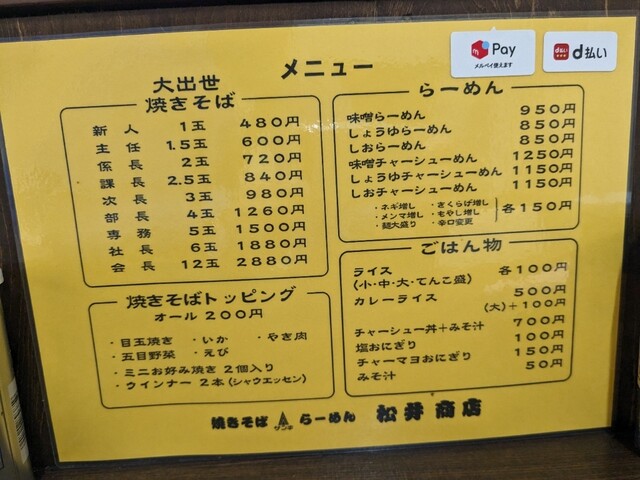 メニュー
Pay
メルペイ使えます
d払い
d払い
大出世
焼きそば
新人 1玉 480円
主任 1.5玉 600円
係長 2玉 720円
課長 2.5玉 840円
次長 3玉 980円
部長 4玉 1260円
専務 5玉 1500円
社長 6玉 1880円
会長 12玉 2880円
焼きそばトッピング
オール200円
・目玉焼き ・いか ・やき肉
・五目野菜 ・えび
・ミニお好み焼き 2個入り
・ウインナー 2本(シャウエッセン)
らーめん
味噌らーめん 950円
しょうゆらーめん 850円
しおらーめん 850円
味噌チャーシューめん 1250円
しょうゆチャーシューめん 1150円
しおチャーシューめん 1150円
・ネギ増し ・きくらげ増し
・メンマ増し ・もやし増し 各150円
・麺大盛り ・辛口変更
ごはん物
ライス 各100円
(小・中・大・てんこ盛)
カレーライス 500円
(大)+100円
チャーシュー丼+みそ汁 700円
塩おにぎり 100円
チャーマヨおにぎり 150円
みそ汁 50円
焼きそば らーめん 松井商店